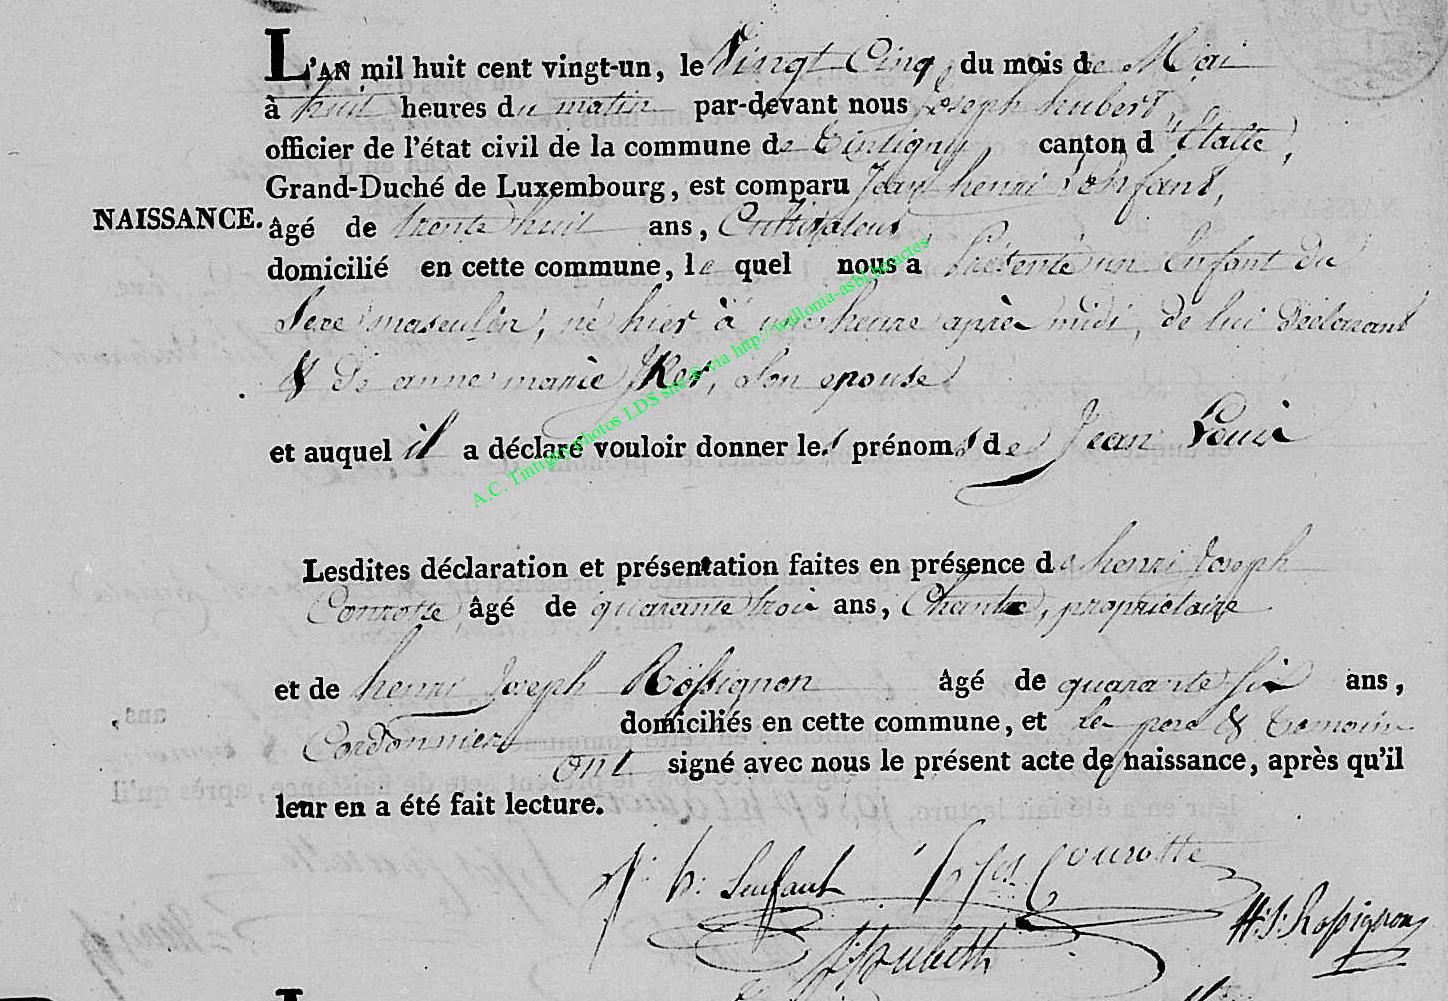 L'AN mil huit cent vingt-un, le Vingt Cinq du mois de Mai
à huit heures du matin par-devant nous Joseph
officier de l'état civil de la commune de Tintigny, canton d'Etalle,
Grand-Duché de Luxembourg, est comparu Jean henri Lenfant,
NAISSANCE. âgé de trente huit ans, Cultivateur
domicilié en cette commune, le quel nous a présenté un Enfant du
Sexe masculin, né hier à une heure après midi, de lui déclarant
& de anne marie son epouse
et auquel il a déclaré vouloir donner les prénoms de Jean Louis
Lesdites déclaration et présentation faites en présence de henri Joseph
Courotte âgé de quarante trois ans, Chantre, propriétaire
et de henri Joseph Rossignon âgé de quarante six ans,
Cordonnier domiciliés en cette commune, et le pere & temoins
ont signé avec nous le présent acte de naissance, après qu'il
leur en a été fait lecture.
J: h: Lenfant h Jos Courotte
H: J: Rossignon
A.C. Tintigny photos LDS site via http://wallonia-asbl.be/actes